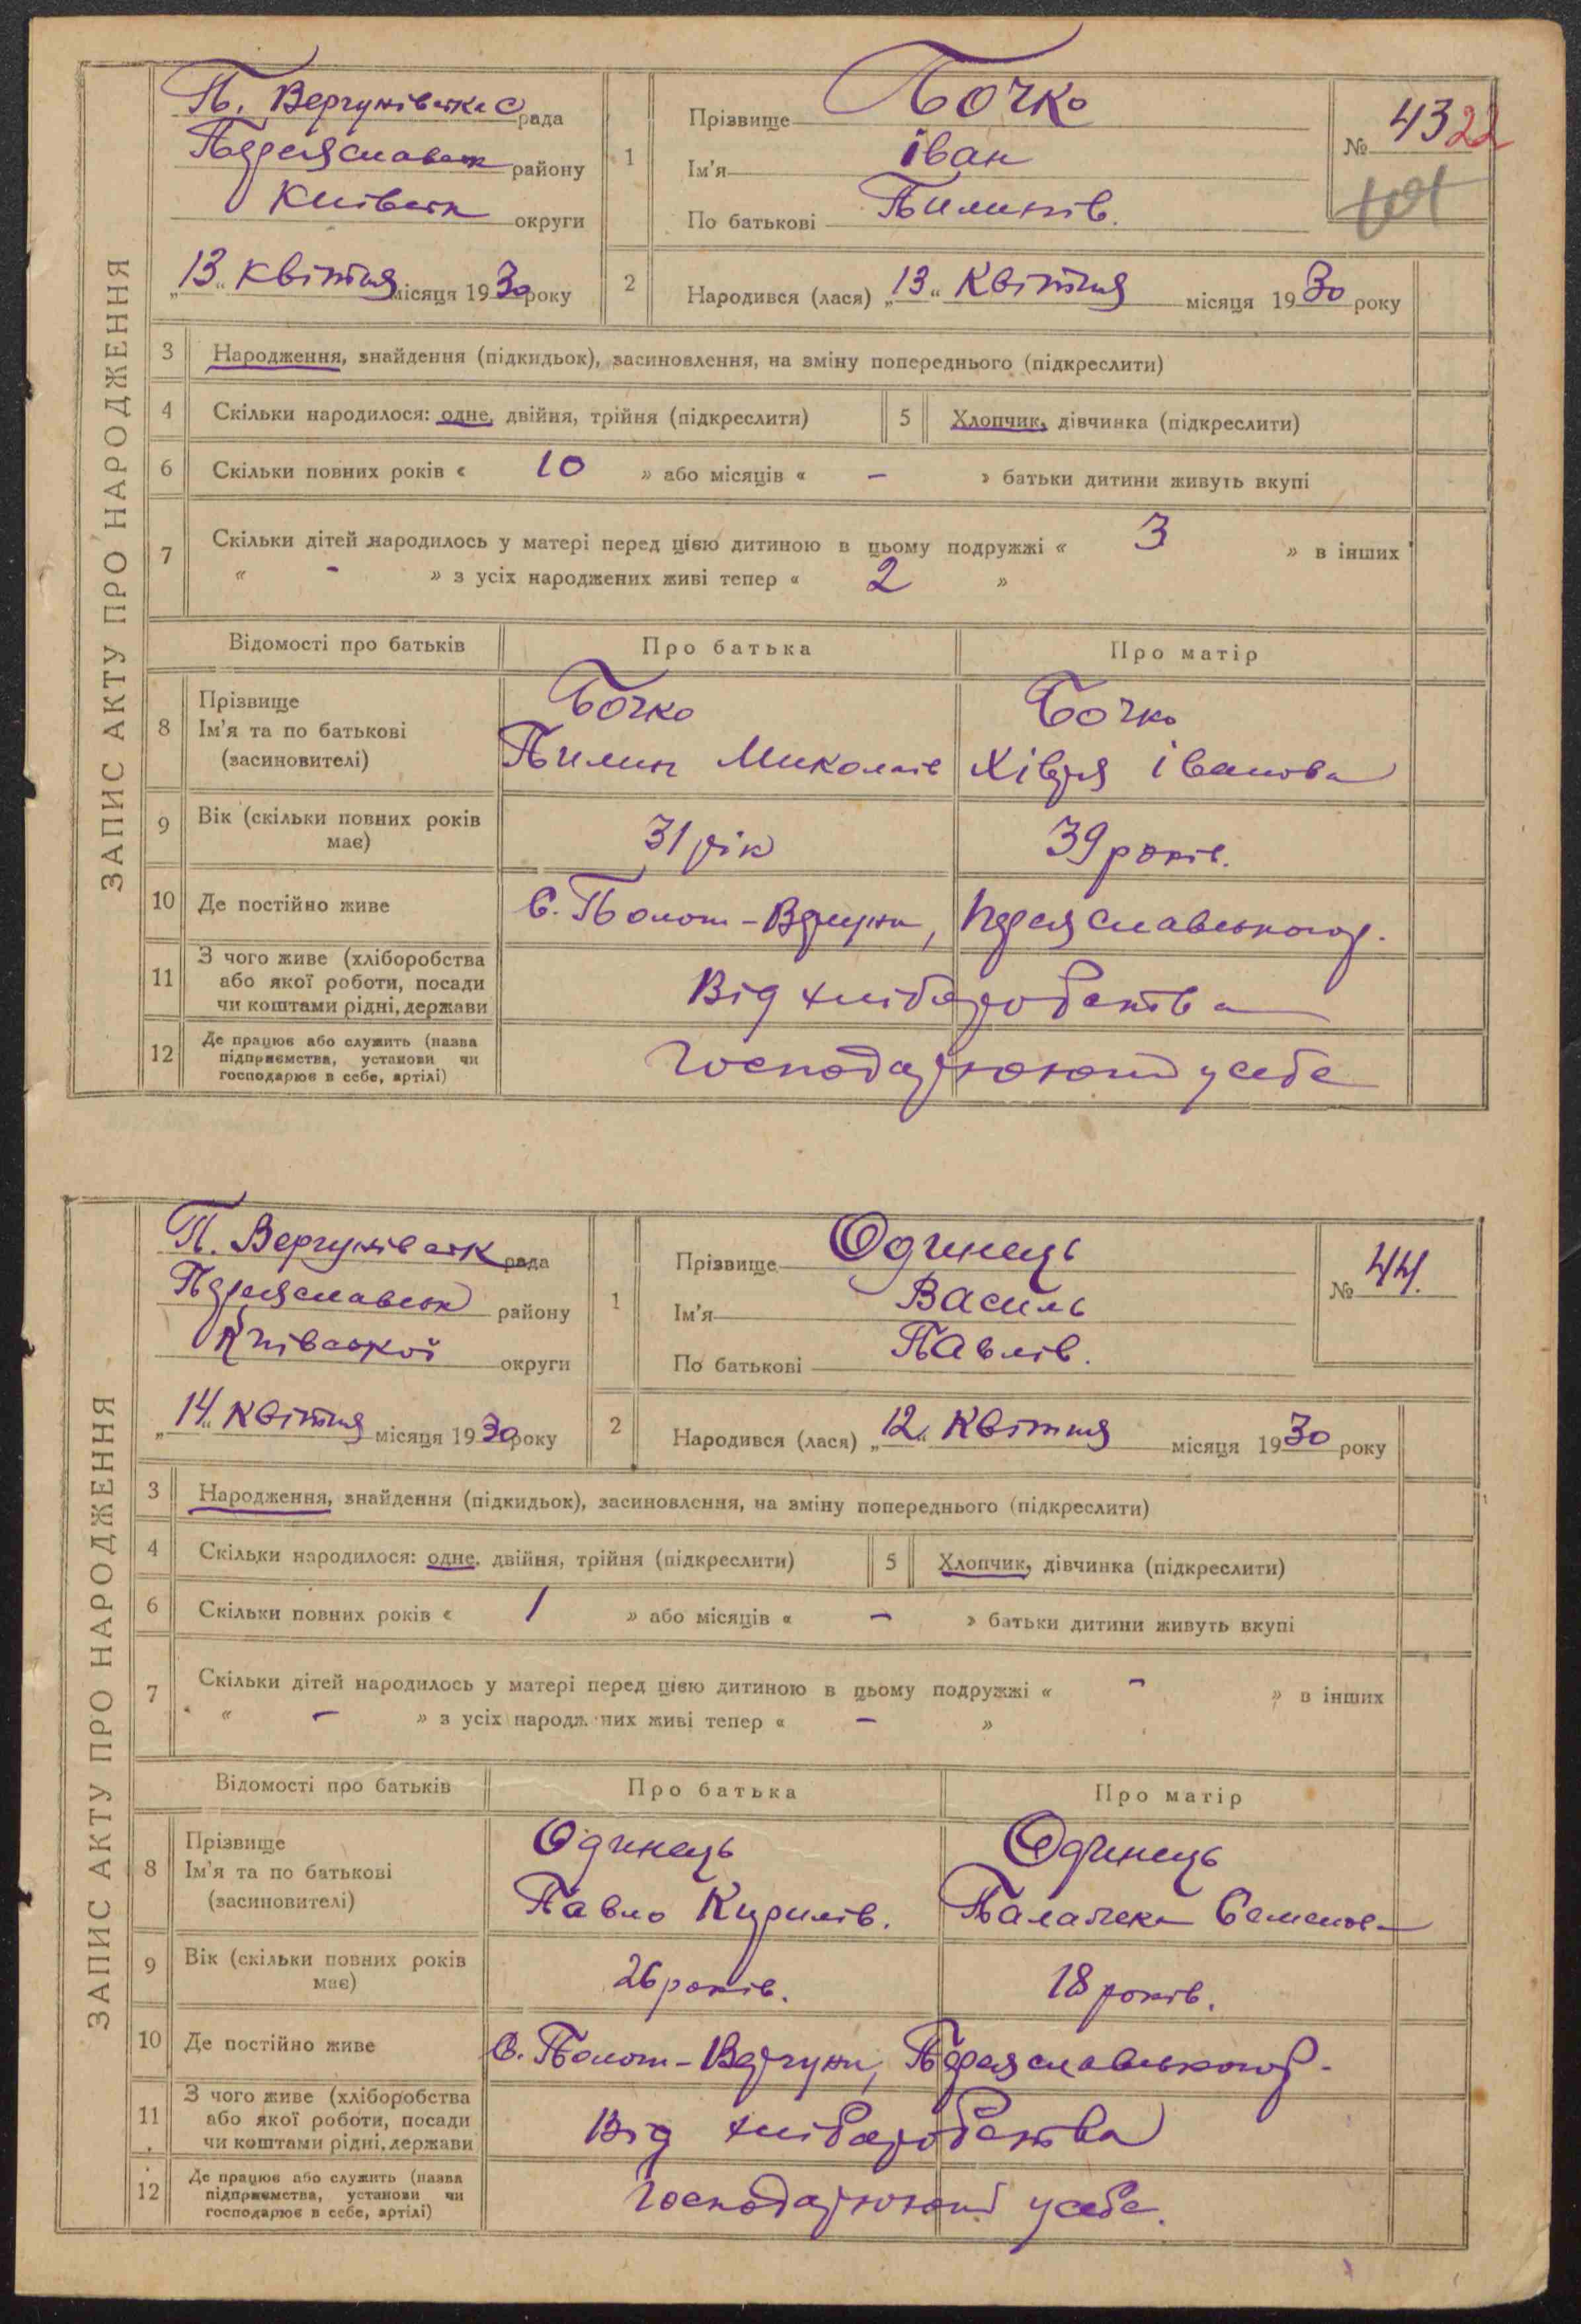 ЗАПИС АКТУ ПРО НАРОДЖЕННЯ
П. Вергунівськ С рада
Переяславськ району
Київськ округи
„13“ квітня місяця 1930 року
1 Прізвище Бочко
Ім'я Іван
По батькові Пилипів.
№ 43 22
2 Народився (лася) „13“ Квітня місяця 1930 року
3 Народження, знайдення (підкидьок), засиновлення, на зміну попереднього (підкреслити)
4 Скільки народилося: одне, двійня, трійня (підкреслити) 5 Хлопчик, дівчинка (підкреслити)
6 Скільки повних років « 10 » або місяців « – » батьки дитини живуть вкупі
7 Скільки дітей народилось у матері перед цією дитиною в цьому подружжі « 3 » в інших
« – » з усіх народжених живі тепер « 2 »
Відомості про батьків Про батька Про матір
8 Прізвище Бочко Бочко
Ім'я та по батькові Пилип Миколаїв Хівря Іванова
(засиновителі)
9 Вік (скільки повних років має) 31 рік 39 років.
10 Де постійно живе С. Полот-Вергуни, Переяславського р.
11 З чого живе (хліборобства
або якої роботи, посади
чи коштами рідні, держави Від хліборобства
12 Де працює або служить (назва
підприємства, установи чи
господарює в себе, артілі) Господарюють у себе
ЗАПИС АКТУ ПРО НАРОДЖЕННЯ
П. Вергунівськ рада
Переяславськ району
Київської округи
„14“ квітня місяця 1930 року
1 Прізвище Одинець
Ім'я Василь
По батькові Павлів.
№ 44.
2 Народився (лася) „12“ Квітня місяця 1930 року
3 Народження, знайдення (підкидьок), засиновлення, на зміну попереднього (підкреслити)
4 Скільки народилося: одне, двійня, трійня (підкреслити) 5 Хлопчик, дівчинка (підкреслити)
6 Скільки повних років « 1 » або місяців « – » батьки дитини живуть вкупі
7 Скільки дітей народилось у матері перед цією дитиною в цьому подружжі « – » в інших
« – » з усіх народж них живі тепер « – »
Відомості про батьків Про батька Про матір
8 Прізвище Одинець Одинець
Ім'я та по батькові Павло Кирилів. Палажка Семенова
(засиновителі)
9 Вік (скільки повних років має) 26 років. 18 років.
10 Де постійно живе С. Полот-Вергуни, Переяславського р.
11 З чого живе (хліборобства
або якої роботи, посади
чи коштами рідні, держави Від хліборобства
12 Де працює або служить (назва
підприємства, установи чи
господарює в себе, артілі) Господарюють у себе.